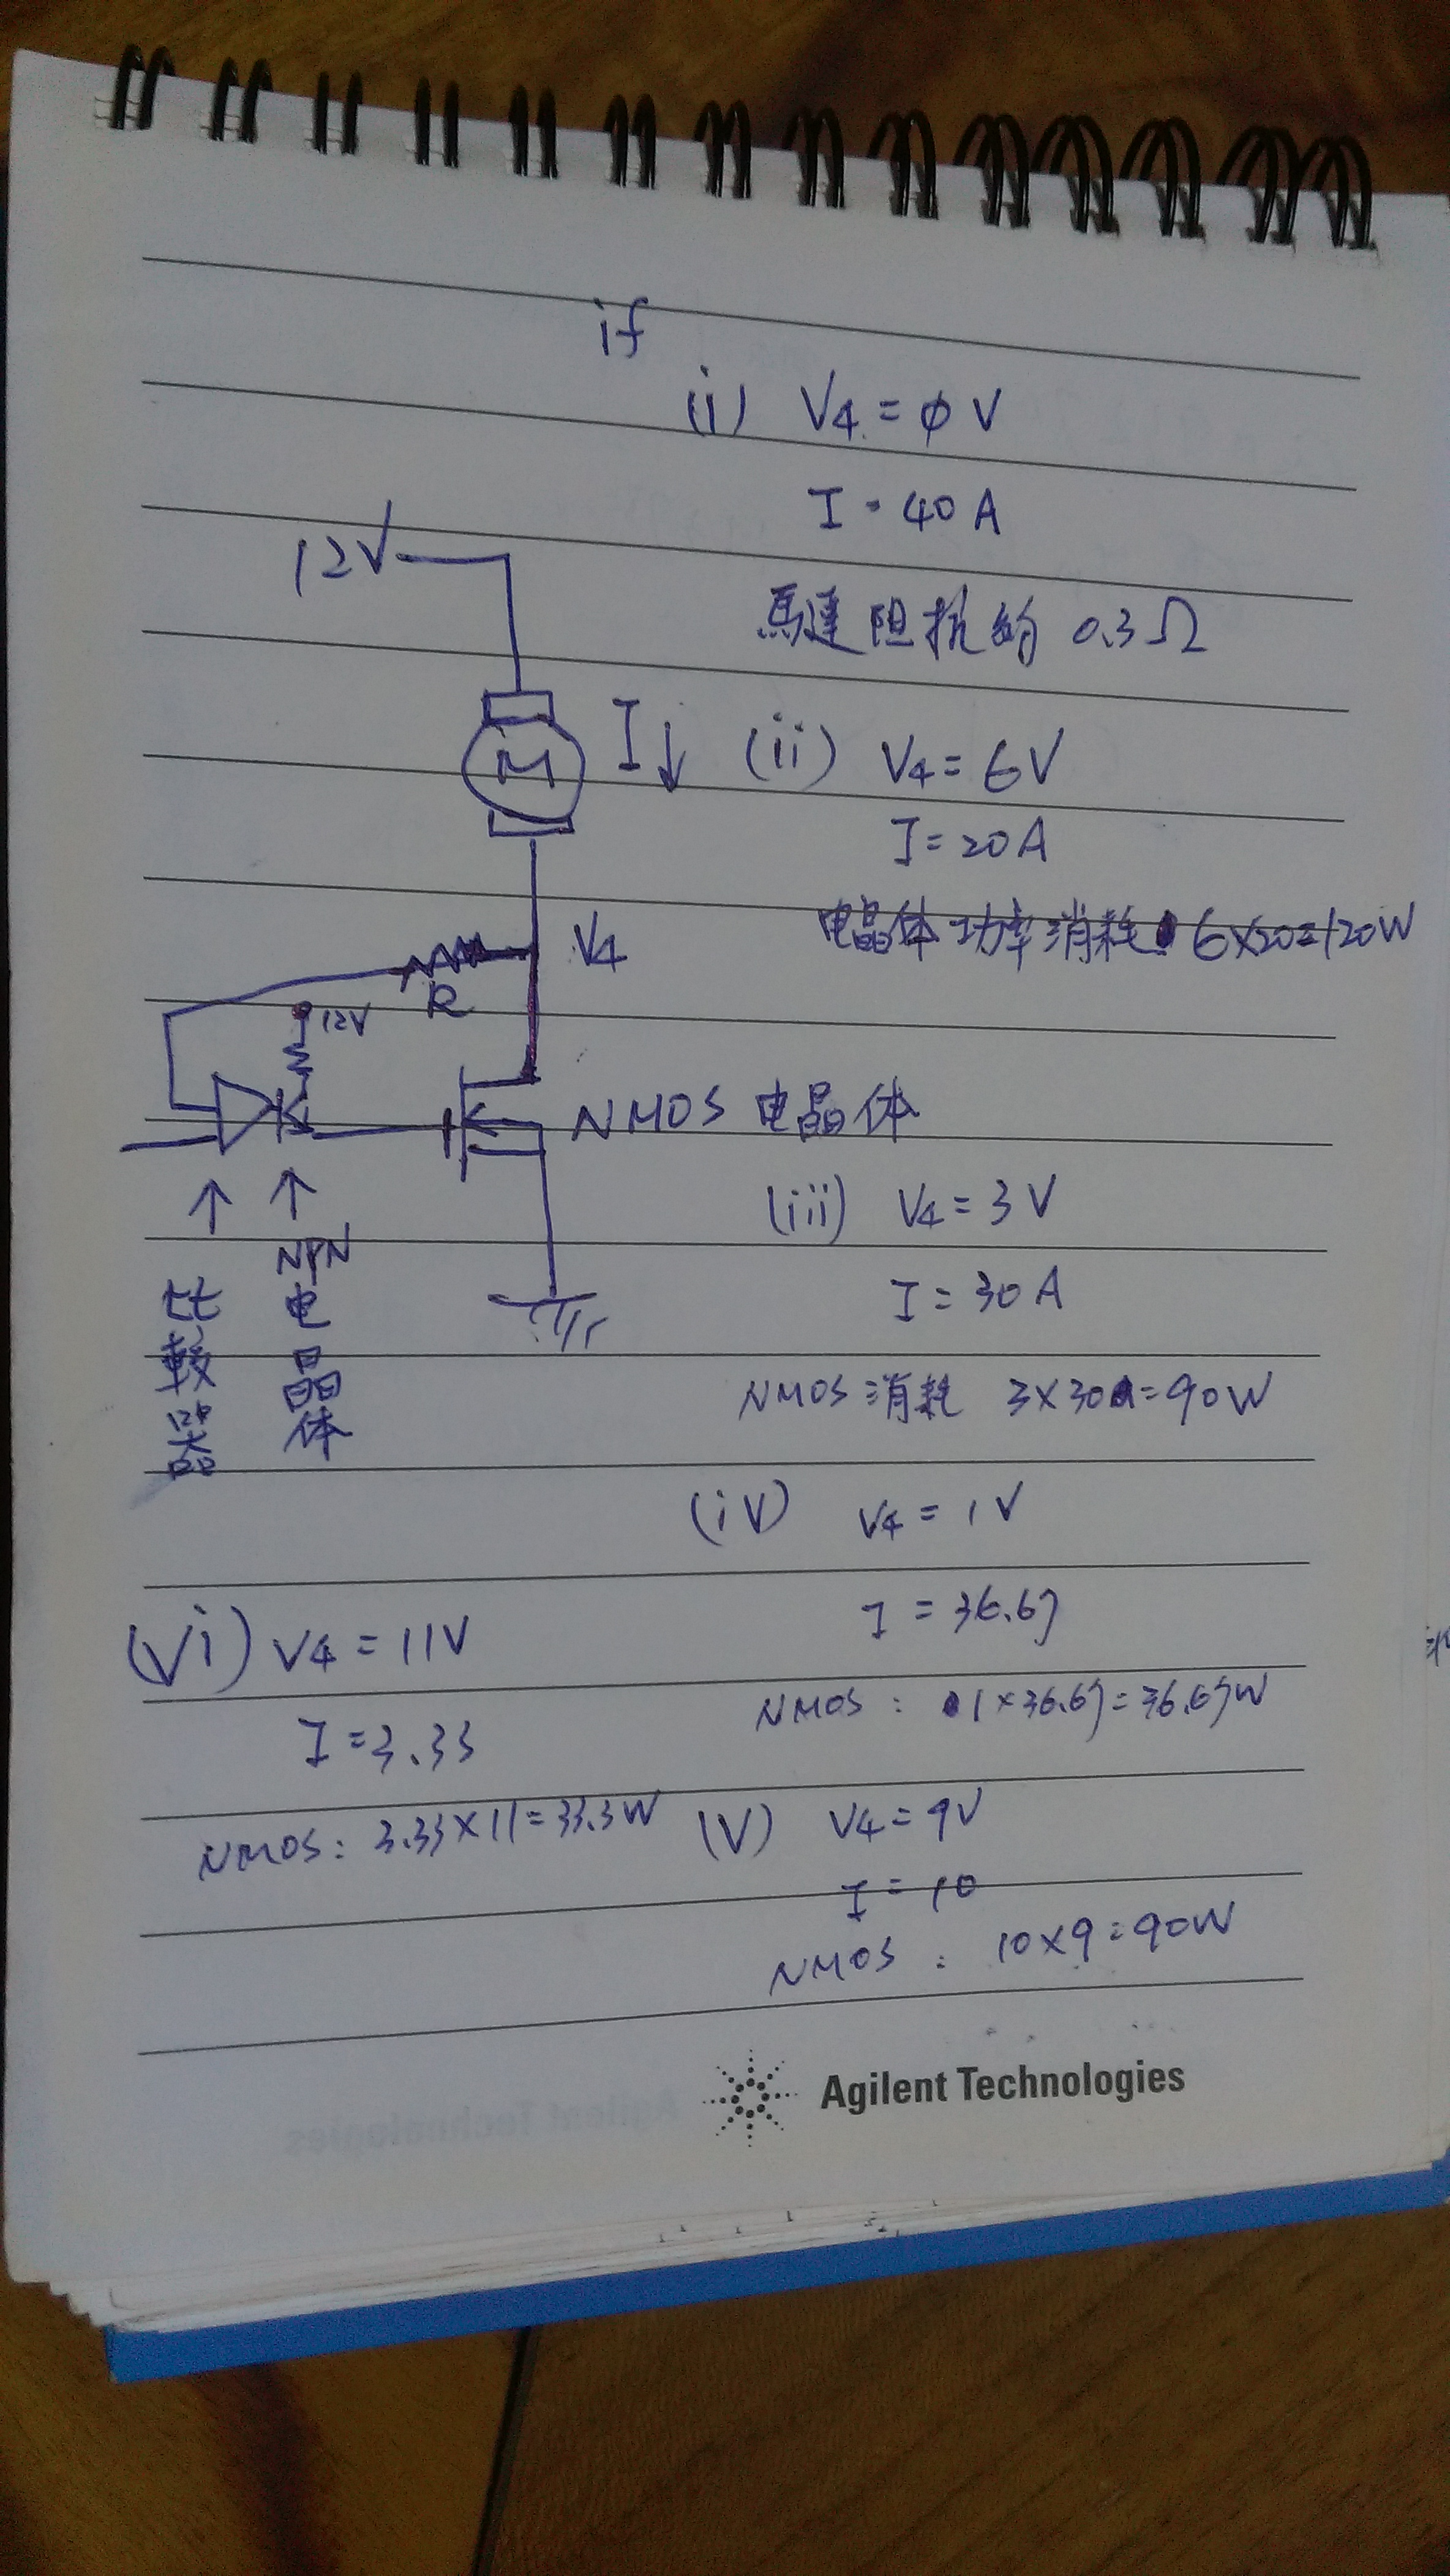 if
(i) V4 = φ V
I = 40 A
12V
馬達阻抗約 0.3Ω
M
I↓
(ii) V4 = 6V
I = 20A
电晶体功率消耗 6×20=120W
V4
R
12V
NMOS 电晶体
(iii) V4 = 3V
I = 30A
NPN
电晶体
比較器
NMOS 消耗 3×30=90W
(iv) V4 = 1V
I = 36.67
NMOS: 1×36.67=36.67W
(vi) V4 = 11V
I = 3.33
NMOS: 3.33×11=33.3W
(V) V4 = 9V
I = 10
NMOS: 10×9=90W
Agilent Technologies